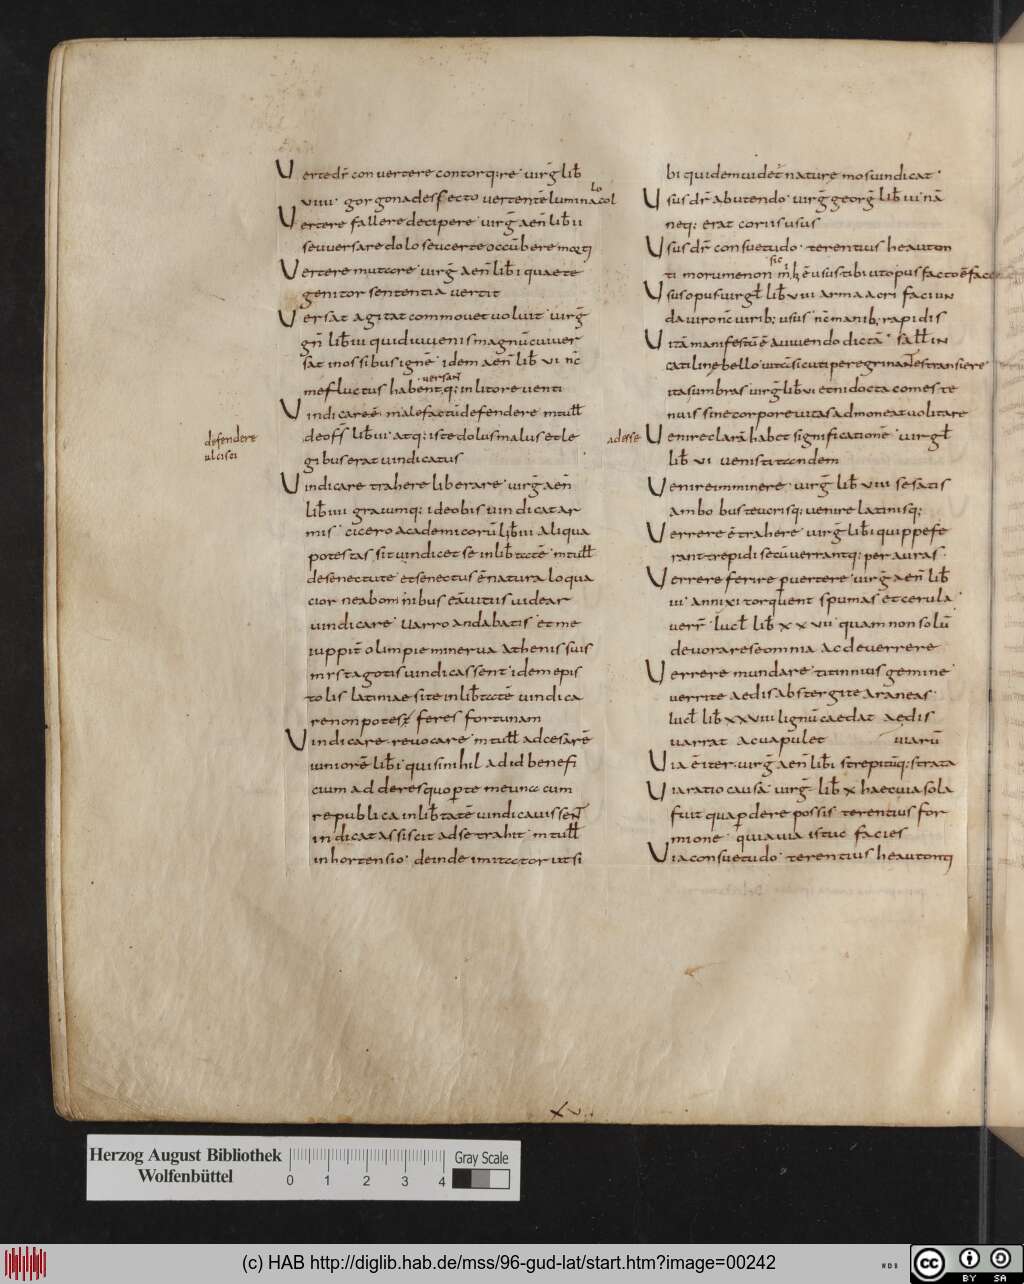 Verte dr̄ convertere contorq:re · virḡ lib̄
viiii · gorgona desfecto vertentē lumina collo
Vertere fallere decipere · virḡ aen̄ lib̄ ii
seu versare dolo seu certe occūbere morti
Vertere mutare · virḡ aen̄ lib̄ i quae te
genitor sententia vertit
Versat agitat commovet voluit · virḡ
gn̄ lib̄ iii quid iuvenis magnū cui ver
sat in ossibus ignē · idem aen̄ lib̄ vi nc̄
me fluctus habent versantq: in litore venti
Vindicare ē malefactū defendere m tull̄
de off̄ lib̄ iii atq: iste dolus malus et le
gibus erat vindicatus
defendere
ulcisci
Vindicare trahere liberare · virḡ aen̄
lib̄ iiii graiumq: ideo bis vindicatar
mis · cicero academicorū lib̄ iii aliqua
potestas sit vindicet se in lib̄tatē · m tull̄
de senectute · et senectus ē natura loqua
cior ne ab omnibus eā vitiis videar
vindicare · Varro andabatis · et me
iuppit̄ olimpie minerva Athenis suis
mystagogis vindicassent · idem epis
tolis latinae si te in lib̄tatē vindica
re non potes feres fortunam
Vindicare · revocare · m tull̄ ad cesarē
iuniorē lib̄ i · qui si nihil ad id benefi
cium ad deres quo p te me una cum
republica in lib̄tatē vindicavissent
indicat assiscit ad se trahit · m tull̄
in hortensio · deinde imitator ut si
bi quidem videt̄ nature mos vindicat ·
Usus dr̄ abutendo · virḡ georḡ lib̄ iii · nā
neq: erat coriis usus
Usus dr̄ consuetudo · terentius heauton
timorumenon mihi sic ē usus tibi ut opus facto ē face
Usus opus virgl̄ lib̄ viii arma acri faciun
da viro nc̄ virib; usus nc̄ manib; rapidis
Vitā manifestū ē a vivendo dictā · sall̄ in
catiline bello vitā sicuti peregrinantes transiere
ita sumbras virḡ lib̄ vi et ni docta comes te
nuis sine corpore vitas admoneat volitare
adesse
Venire clarā habet significationē · virgl̄
lib̄ vi venisti tandem
Venire imminere · virḡ lib̄ viii se satis
ambobus teucrisq; venire latinisq;
Verrere ē trahere virḡ lib̄ i quippe fe
rant trepidi secū verrantq; per auras ·
Verrere ferire pvertere · virḡ aen̄ lib̄
iii · annixi torquent spumas et cerula ·
verr̄ · lucl̄ lib̄ xxvii · quam non solū
devorare se omnia ac deverrere
Verrere mundare · titinnius gemine ·
verrite aedis abstergite araneas ·
lucl̄ lib̄ xxviii lignū caedat aedis
varrat acvapulet varū
Via ē iter · virḡ aen̄ lib̄ i strepitūq; strata
Via ratio causa · virḡ lib̄ x haec via sola
fuit qua pdere possis terentius for
mione · quia via istuc facies
Via consuetudo · terentius heautonti
xv.
Herzog August Bibliothek
Wolfenbüttel
0 1 2 3 4
Gray Scale
(c) HAB http://diglib.hab.de/mss/96-gud-lat/start.htm?image=00242
WDB
cc BY SA